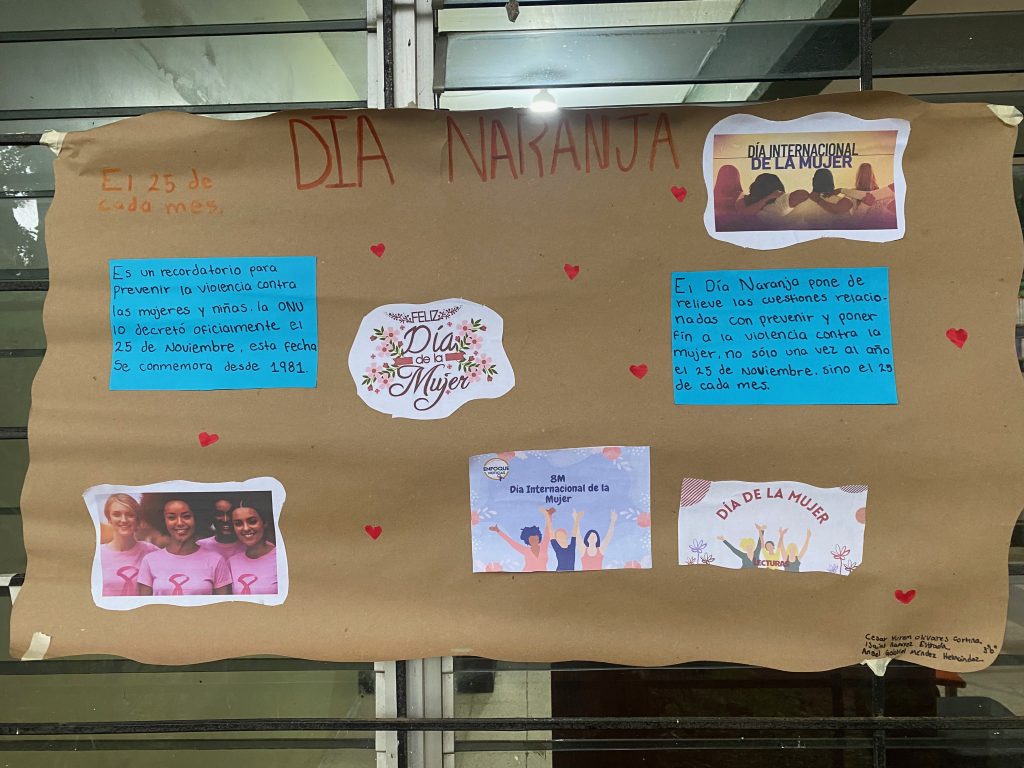 DIA NARANJA
El 25 de
cada mes.
DÍA INTERNACIONAL
DE LA MUJER
Es un recordatorio para
Prevenir la violencia contra
las mujeres y niñas. la ONU
lo decretó oficialmente el
25 de Noviembre, esta fecha
Se conmemora desde 1981.
FELIZ
Día
de la
Mujer
El Día Naranja pone de
relieve las cuestiones relacio-
nadas con prevenir y poner
Fin a la violencia contra la
mujer, no sólo una vez al año
el 25 de Noviembre, sino el 25
de cada mes.
ENFOQUE
NOTICIAS
8M
Día Internacional de la
Mujer
DÍA DE LA MUJER
LECTURAS
Cesar Hiram Olivares Cortina
Ramirez Estrada 3°b"
Angel Gabriel Méndez Hernández